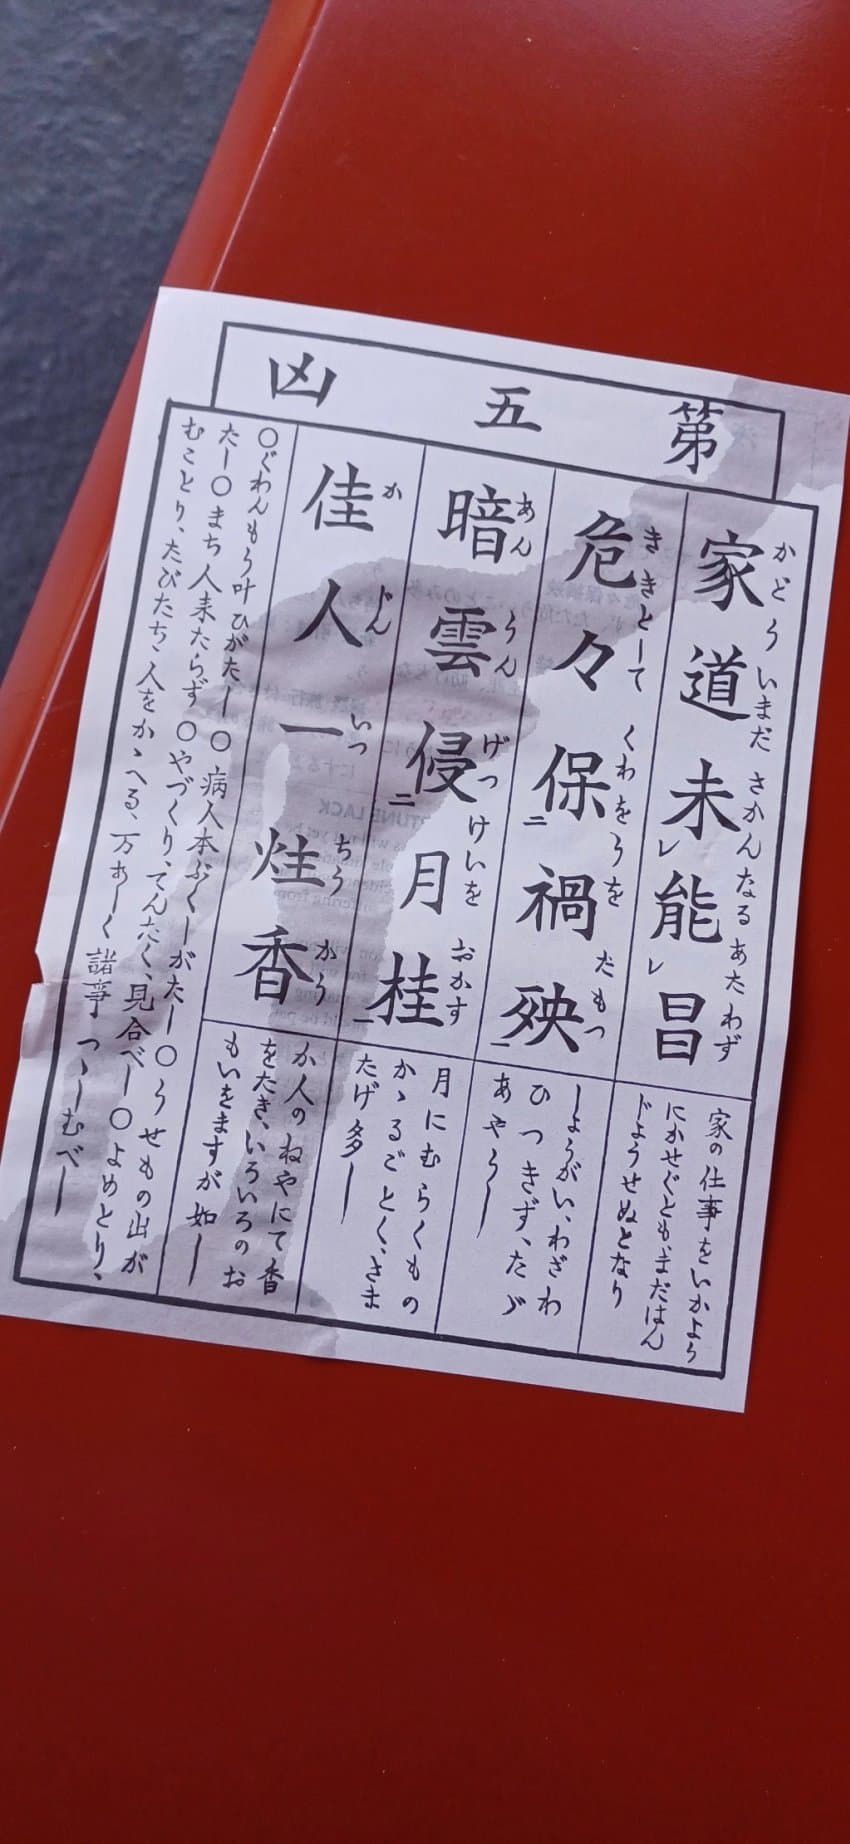 第五凶
家道未能昌
かどういまださかんなるあたわず
危々保禍殃
ききとしてくわをうをたもつ
暗雲侵月桂
あんうんげつけいをおかす
佳人一炷香
かじんいつちうかう
家の仕事をいかよう
にかせぐとも、まだはん
じようせぬとなり
しようがい、わざわ
ひつきず、たゞ
あやうし
月にむらくもの
かゝるごとく、さま
たげ多し
か人のねやにて香
をたき、いろいろのお
もいをますが如し
○ぐわんもう叶ひがたし○病人本ぶくしがたし○うせもの出が
たし○まち人来たらず○やづくり、てんたく、見合べし○よめとり、
むことり、たびたち、人をかゝへる、万あしく諸事つゝしむべし